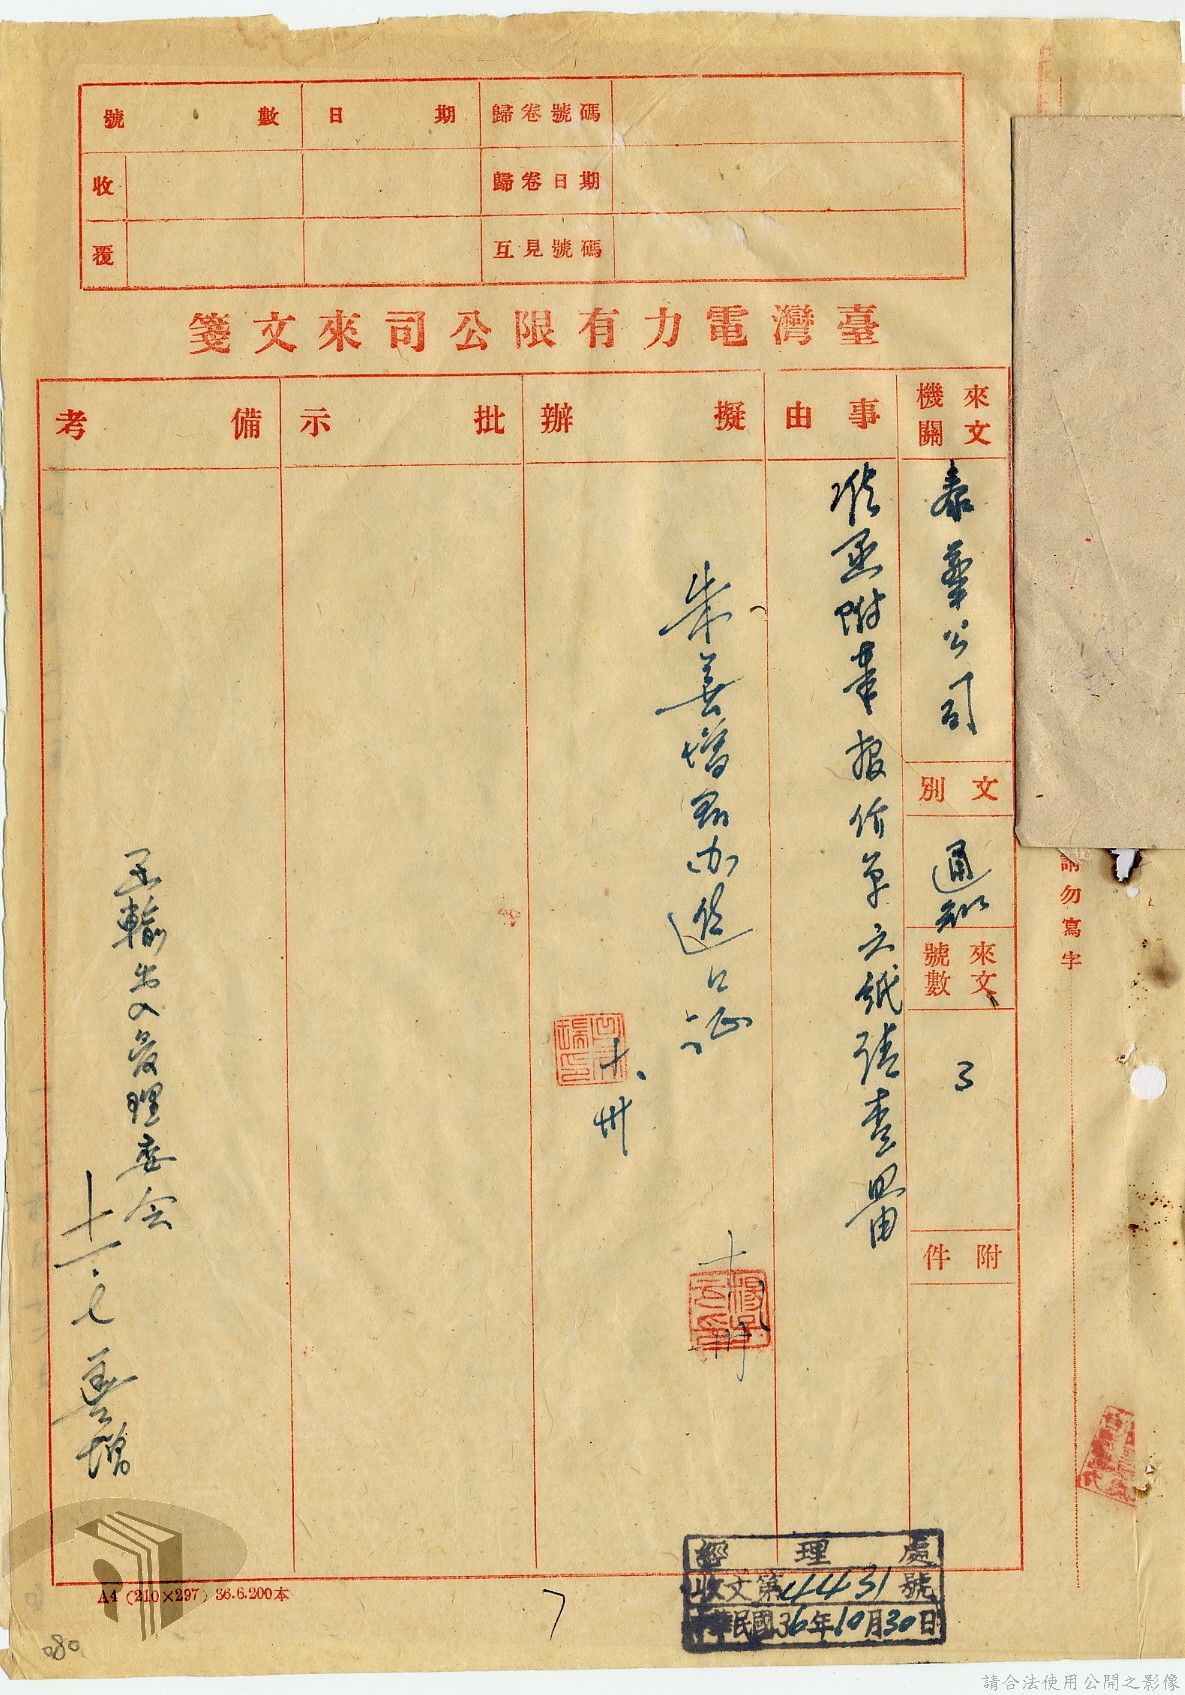 號數 日期 歸卷號碼
收 歸卷日期
覆 互見號碼
臺灣電力有限公司來文箋
來文機關
泰華公司
文別
通知
來文號數
3
附件
事由
准函附筆報价單六紙請查照由
擬辦
朱善增君办進口证
十、卅
十
批示
備考
函輸出入管理委会
十一.七 善增
請勿寫字
經理處
收文第4431號
中華民國36年10月30日
A4 (210×297) 36.6.200本
7
080
請合法使用公開之影像